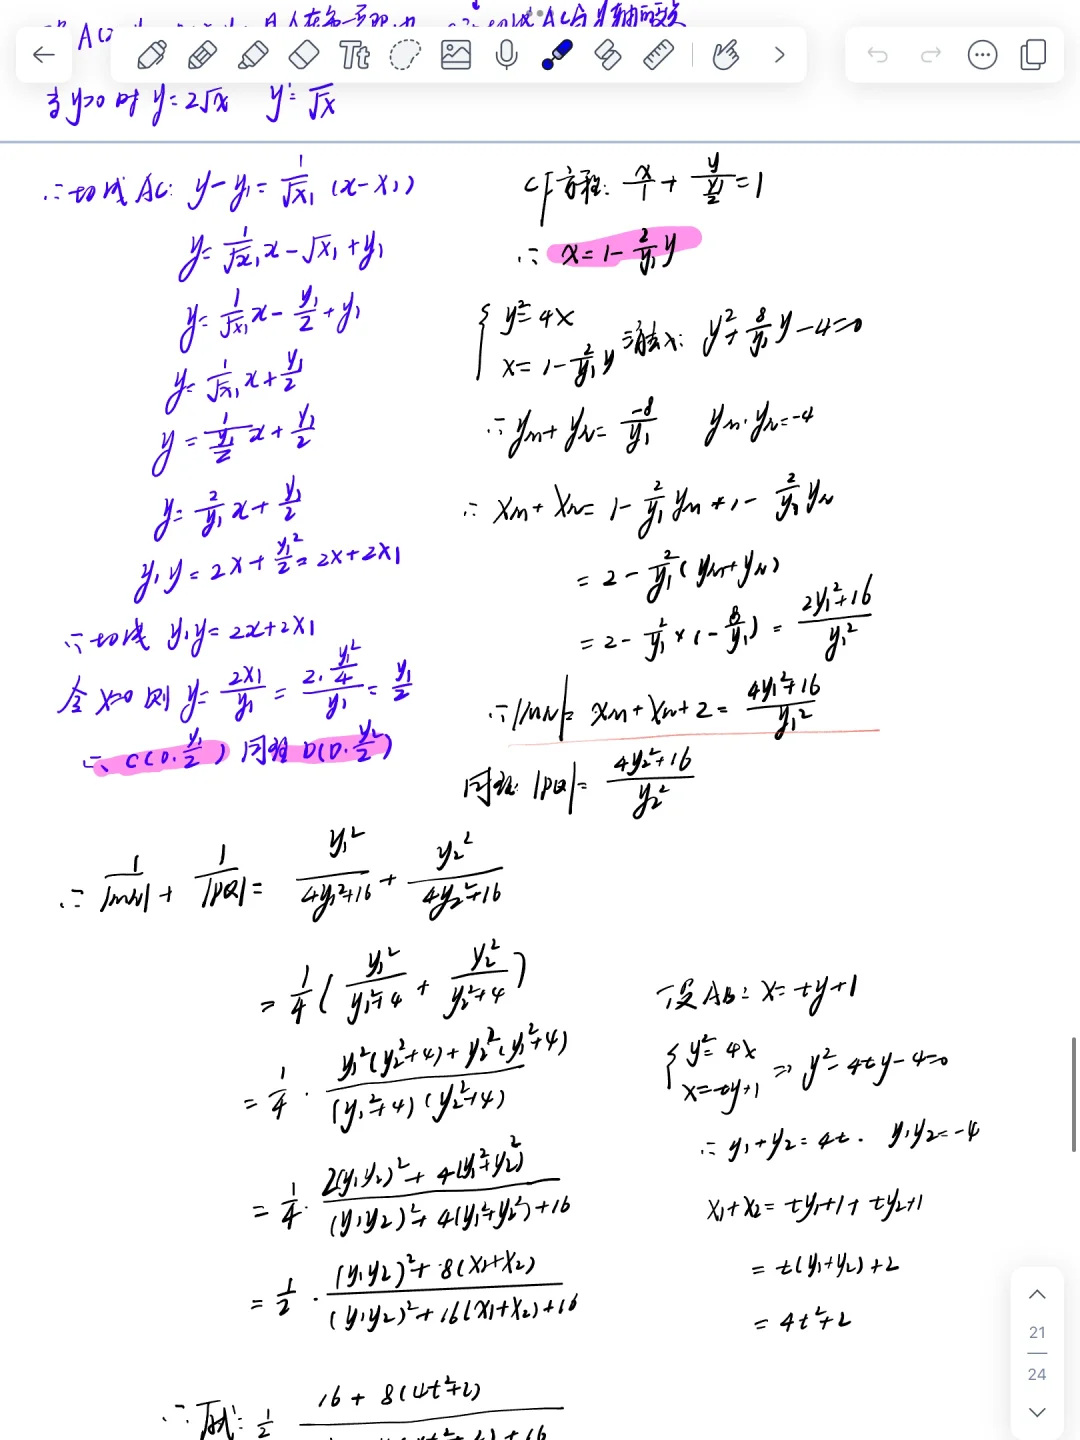 Tt
当y>0时 y=2√x y'=1/√x
∴切线AC: y-y₁=1/√x₁ (x-x₁)
y=1/√x₁ x-√x₁+y₁
y=1/√x₁ x-y₁/2+y₁
y=1/√x₁ x+y₁/2
y=1/(y₁/2) x+y₁/2
y=2/y₁ x+y₁/2
y₁y=2x+y₁²/2=2x+2x₁
∴切线 y₁y=2x+2x₁
令x=0则 y=2x₁/y₁=(2·y₁²/4)/y₁=y₁/2
∴C(0.y₁/2)同理D(0.y₂/2)
CF方程: x/1+y/(y₁/2)=1
∴ x=1-2/y₁ y
{y²=4x
x=1-2/y₁ y 消去x: y²+8/y₁ y-4=0
∴yM+yN=-8/y₁ yM·yN=-4
∴ xM+xN=1-2/y₁ yM+1-2/y₁ yN
=2-2/y₁(yM+yN)
=2-2/y₁×(-8/y₁)=(2y₁²+16)/y₁²
∴|MN|=xM+xN+2=(4y₁²+16)/y₁²
同理: |PQ|=(4y₂²+16)/y₂²
∴ 1/|MN|+1/|PQ|=y₁²/(4y₁²+16)+y₂²/(4y₂²+16)
=1/4(y₁²/(y₁²+4)+y₂²/(y₂²+4))
=1/4·(y₁²(y₂²+4)+y₂²(y₁²+4))/((y₁²+4)(y₂²+4))
=1/4·(2(y₁y₂)²+4(y₁²+y₂²))/((y₁y₂)²+4(y₁²+y₂²)+16)
=1/2·((y₁y₂)²+8(x₁+x₂))/((y₁y₂)²+16(x₁+x₂)+16)
设AB: x=ty+1
{y²=4x
x=ty+1 ⇒ y²-4ty-4=0
∴y₁+y₂=4t. y₁y₂=-4
x₁+x₂=ty₁+1+ty₂+1
=t(y₁+y₂)+2
=4t²+2
∴原式=1/2 16+8(4t²+2)
21
24